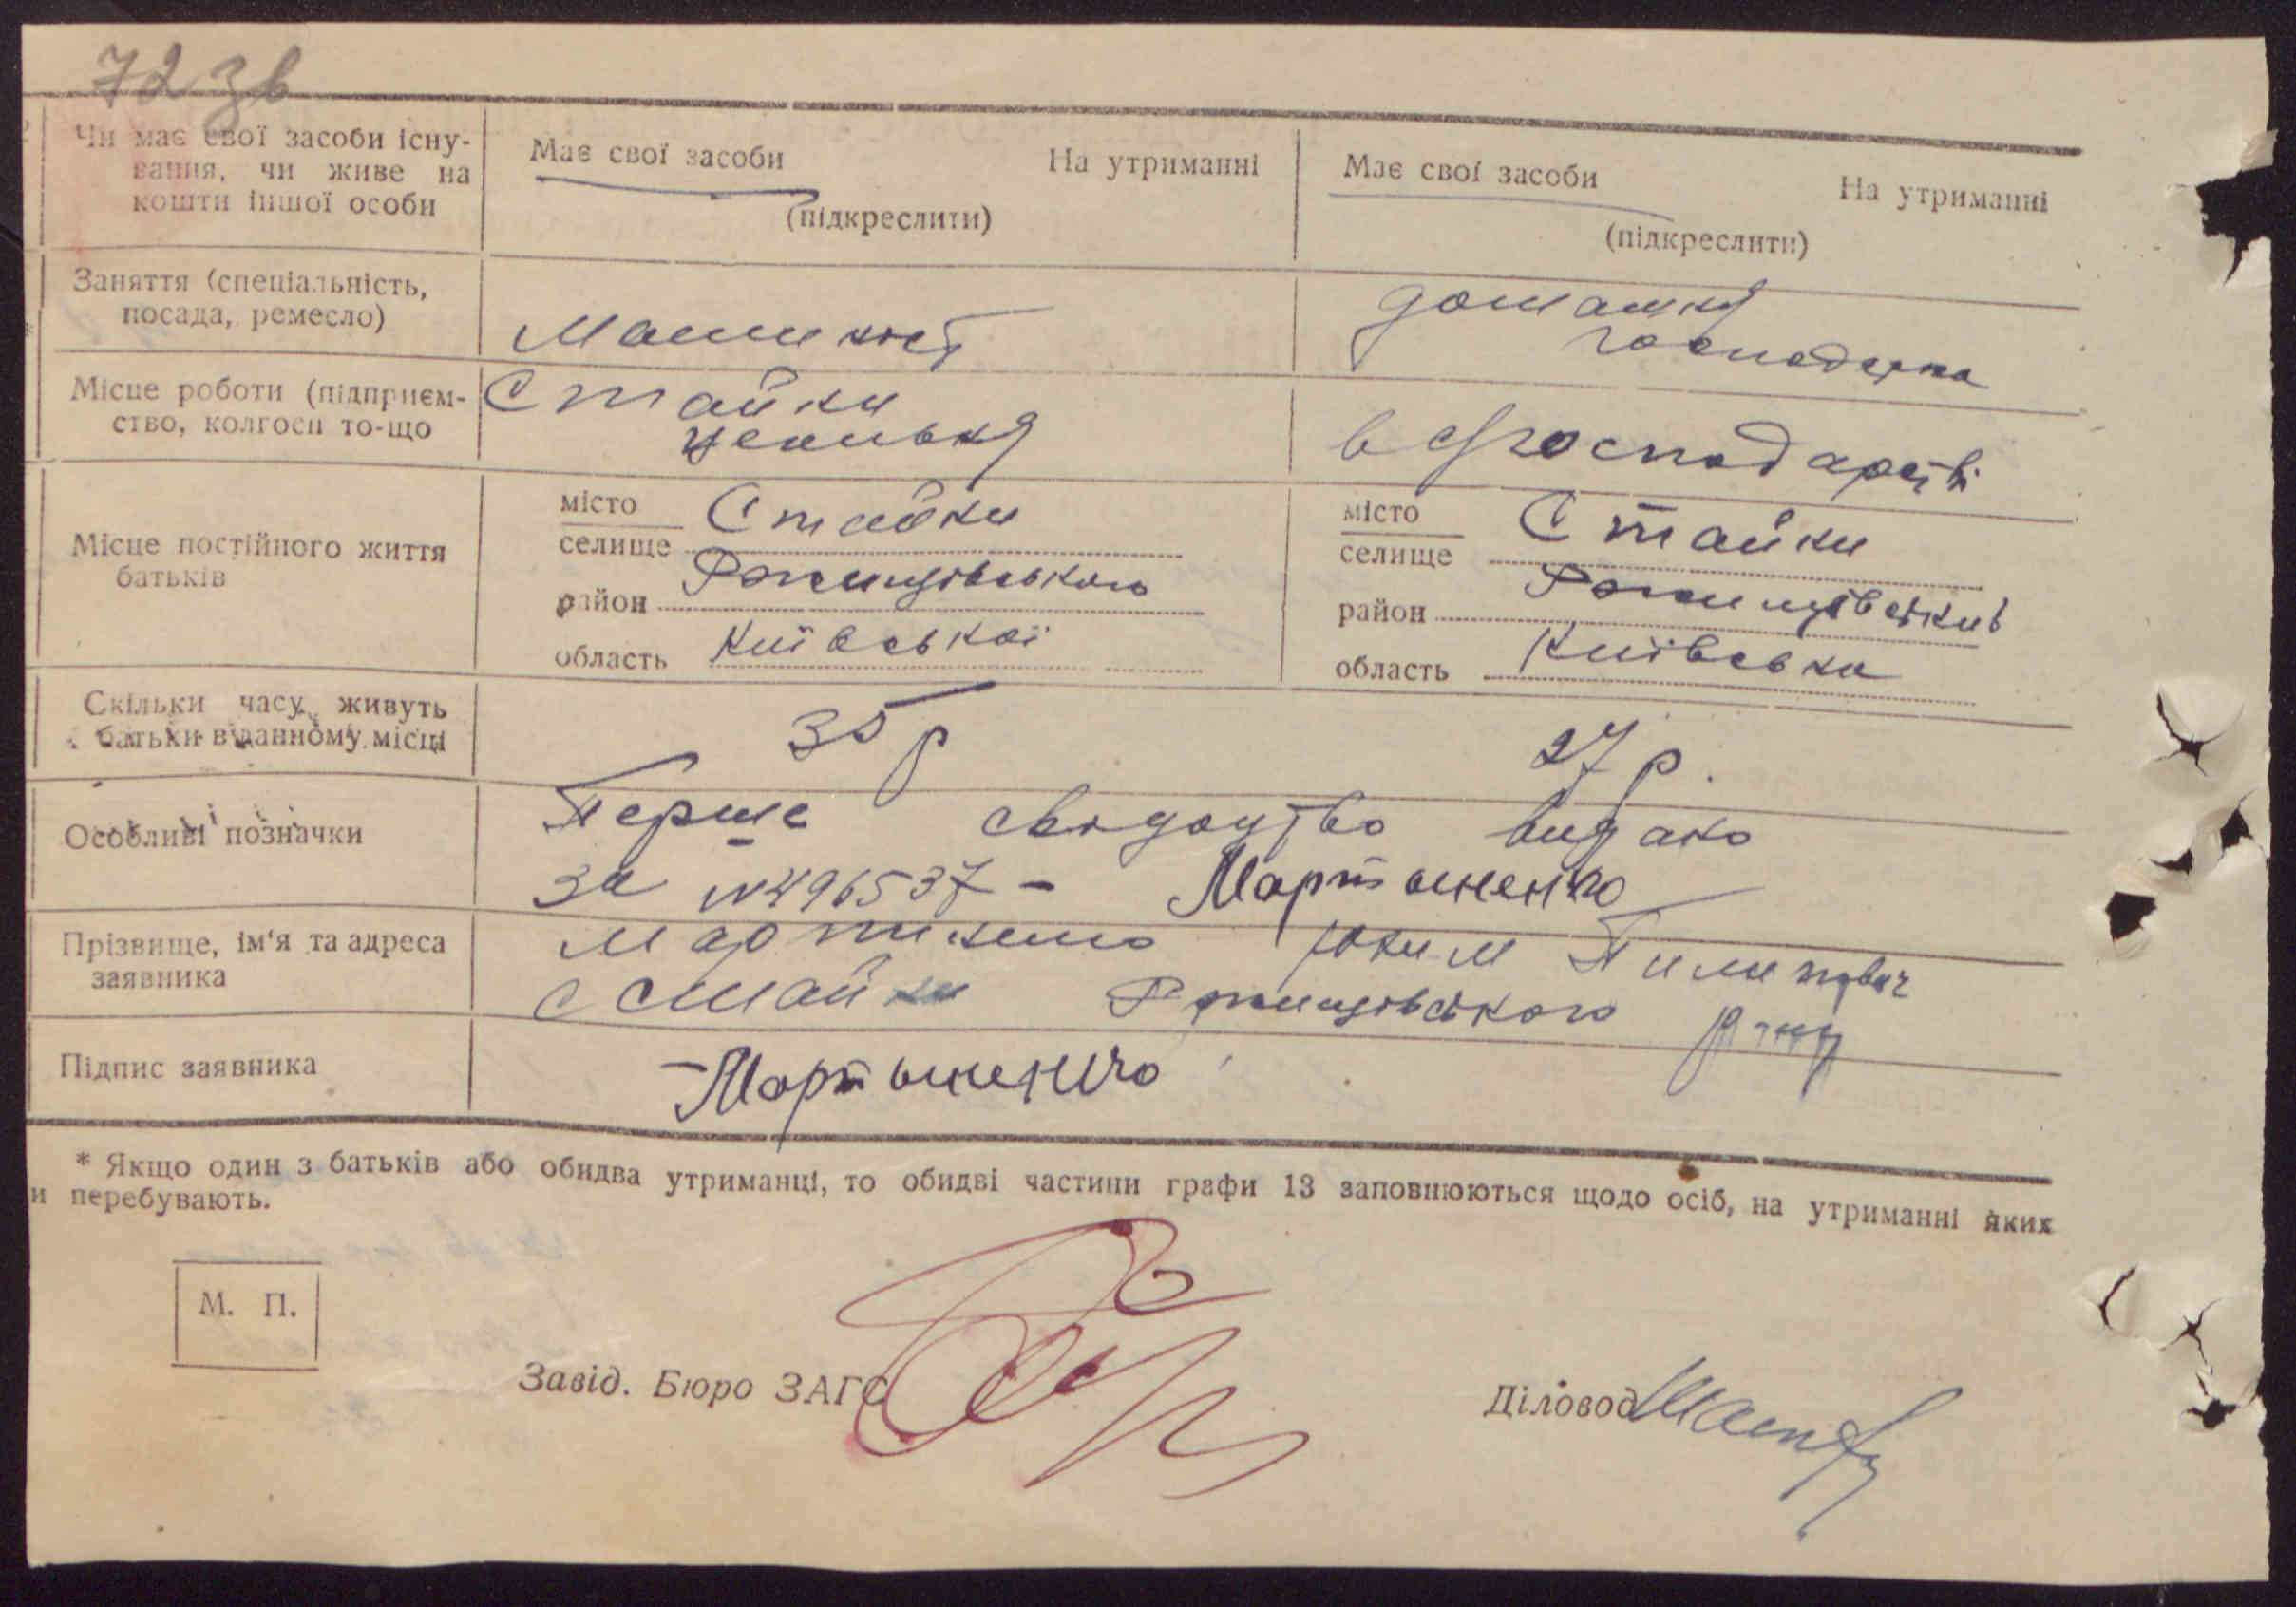 72 зв
Чи має свої засоби існу-
вання, чи живе на
кошти іншої особи
Має свої засоби На утриманні
(підкреслити)
Має свої засоби На утриманні
(підкреслити)
Заняття (спеціальність,
посада, ремесло)
Машиніст
домашня
господарка
Місце роботи (підприєм-
ство, колгосп то-що
Стайки
в с/господарстві
Місце постійного життя
батьків
місто
селище Стайки
район Ржищівського
область Київської
місто
селище Стайки
район Ржищівський
область Київська
Скільки часу живуть
батьки в данному місці
35 р
27 р.
Особливі позначки
Перше свідоцтво видано
за №496537 – Мартыненко
Прізвище, ім'я та адреса
заявника
Мартиненко Юхим Пилипович
с Стайки Ржищівського р-ну
Підпис заявника
– Мартыненко
* Якщо один з батьків або обидва утриманці, то обидві частини графи 13 заповнюються щодо осіб, на утриманні яких
и перебувають.
М. П.
Завід. Бюро ЗАГС
Діловод